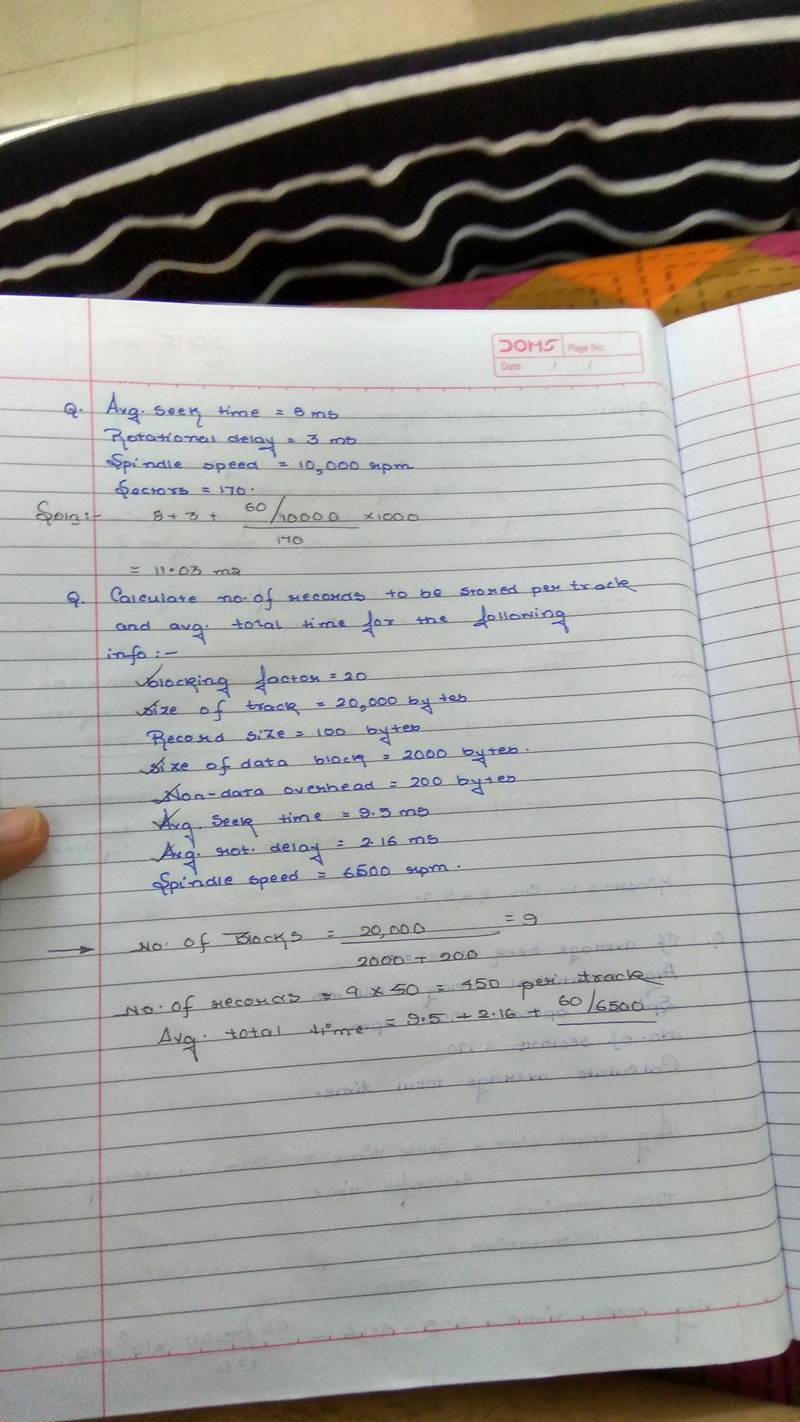 DOMS Page No.
Date / /
Q. Avg. seek time = 8 ms
Rotational delay = 3 ms
Spindle speed = 10,000 rpm
Sectors = 170.
Soln:- 8 + 3 + 60/10000 × 1000
170
= 11.03 ms
Q. Calculate no. of records to be stored per track
and avg. total time for the following
info :-
blocking factor = 20
Size of track = 20,000 bytes
Record size = 100 bytes
Size of data block = 2000 bytes.
Non-data overhead = 200 bytes
Avg. seek time = 9.5 ms
Avg. rot. delay = 2.16 ms
Spindle speed = 6500 rpm.
→ No. of Blocks = 20,000 = 9
2000 + 200
No. of records = 9 × 50 = 450 per track
Avg. total time = 9.5 + 2.16 + 60/6500